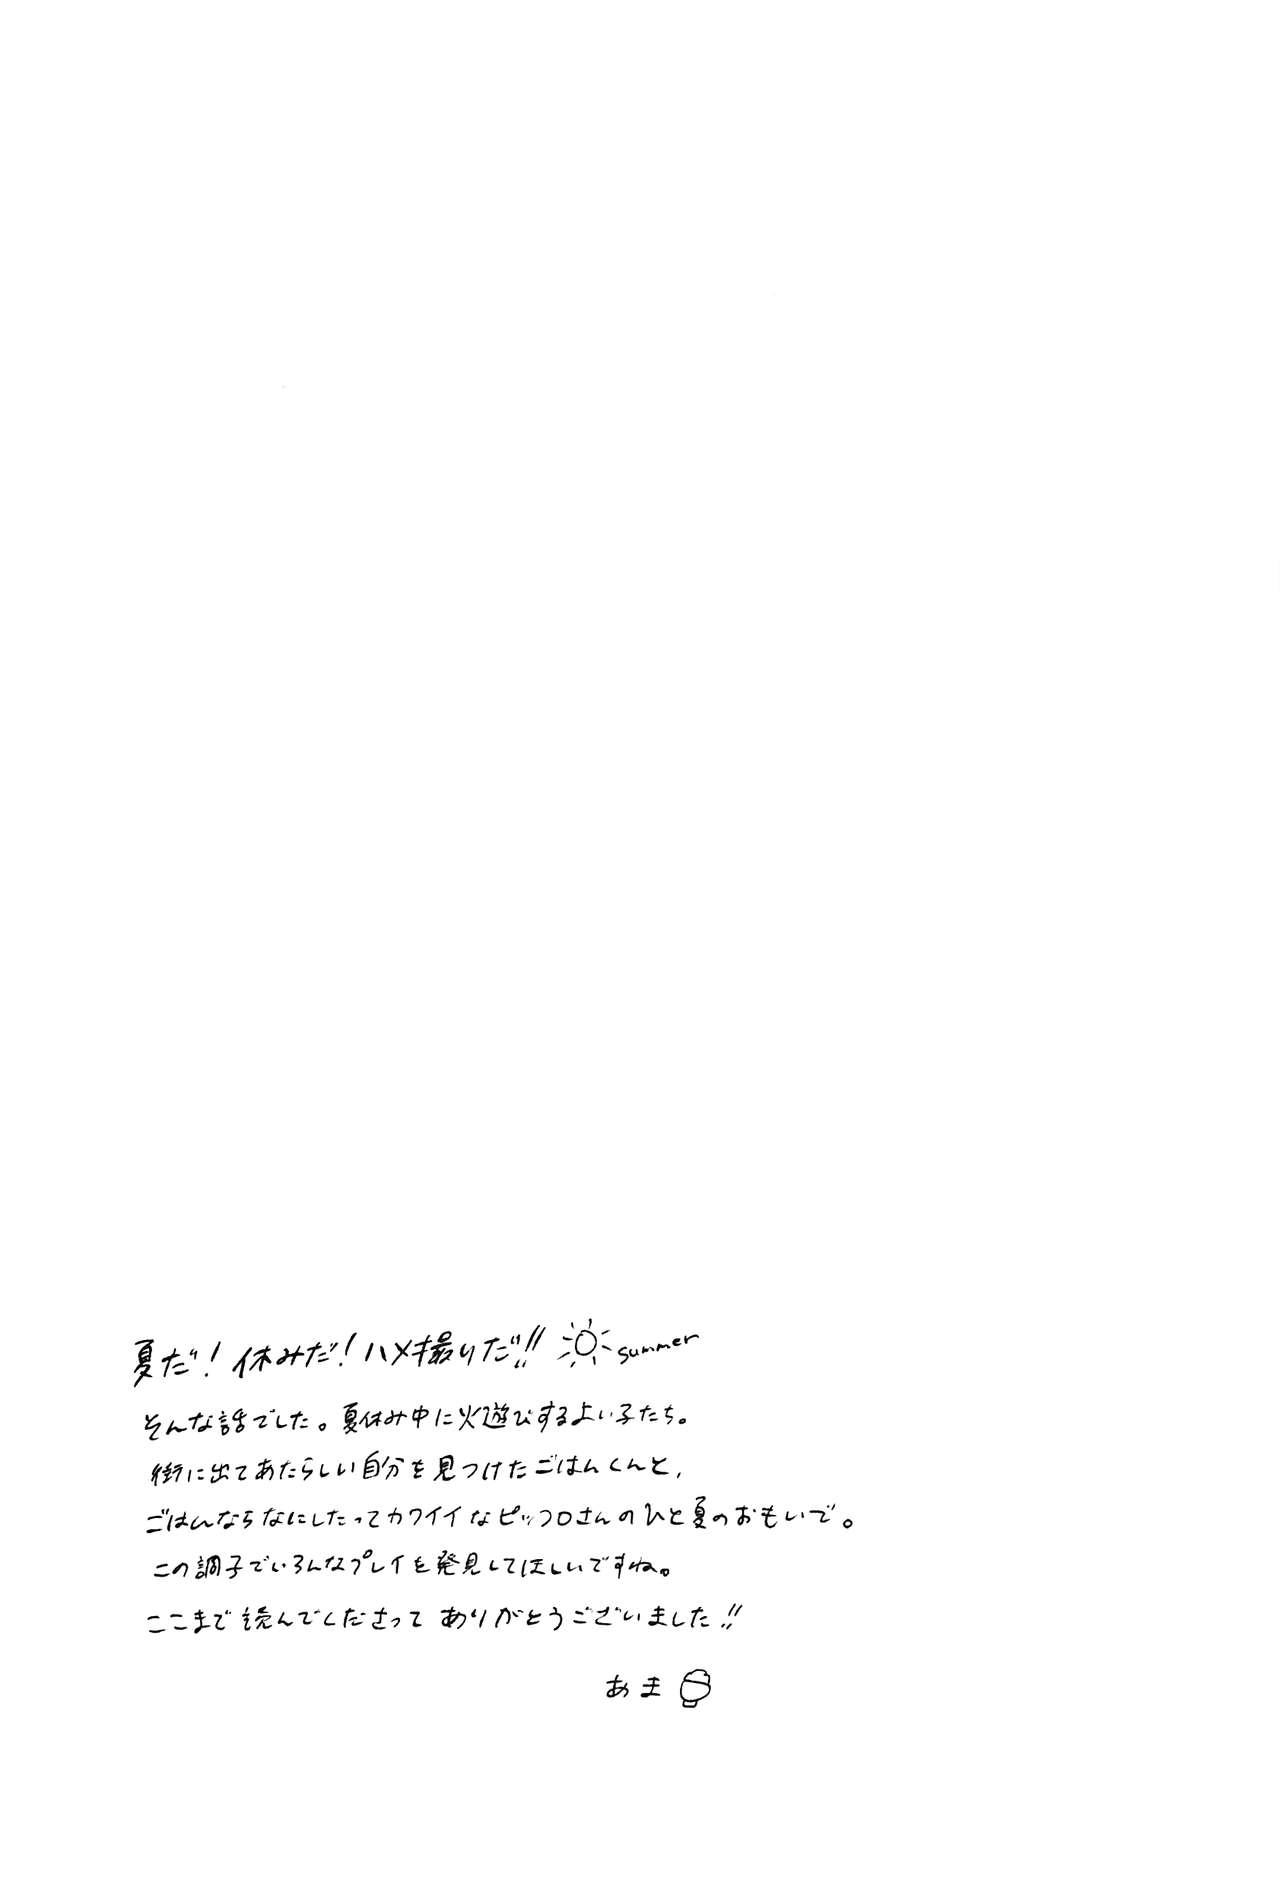 夏だ!休みだ!ハメ撮りだ!! summer
そんな話でした。夏休み中に火遊びするよい子たち。
街に出てあたらしい自分を見つけたごはんくんと、
ごはんならなにしたってカワイイなピッコロさんのひと夏のおもいで。
この調子でいろんなプレイを発見してほしいですね。
ここまで読んでくださってありがとうございました!!
あま